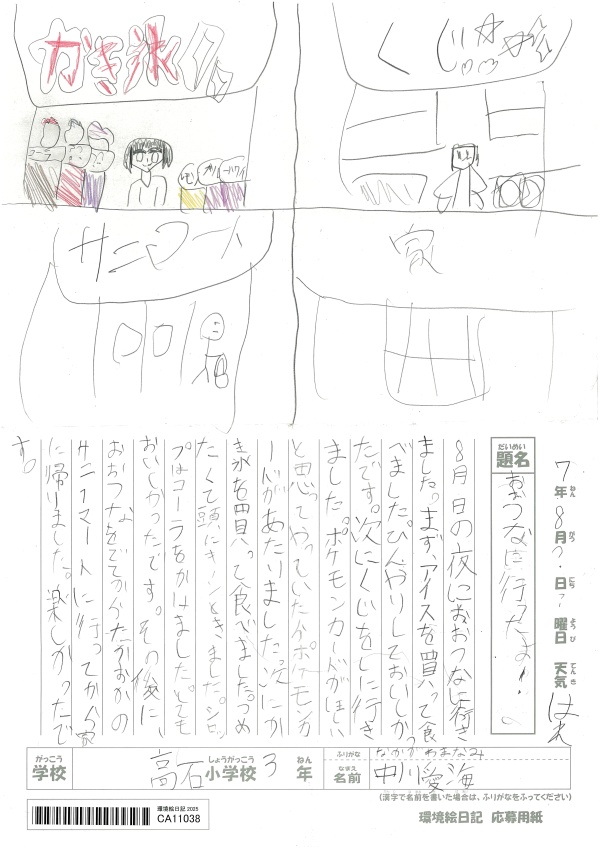 かき氷
くじ
コーラ
レモン
サニーマート
家
7年8月?日?曜日 天気 はれ
ねん がつ にち ようび てんき
だいめい
題名
おおつなに行ったよ!
8月 日の夜におおつなに行き
ました。まず、アイスを買って食
べましたひんやりしておいしかっ
たです。次にくじをしに行き
ました。ポケモンカードがほしい
と思ってやっていたらポケモンカ
ードがあたりました。次にか
き氷を買って食べました。つめ
たくて頭にキーンときました。シロッ
プはコーラをかけました。とても
おいしかったです。その後に、
おおつなをでてからたかおかの
サニーマートに行ってから家
に帰りました。楽しかったで
す。
がっこう
学校
高石小学校 3年
しょうがっこう
ねん
ふりがな
なかがわまなみ
なまえ
名前
中川愛海
(漢字で名前を書いた場合は、ふりがなをふってください)
環境絵日記 2025
CA11038
環境絵日記 応募用紙